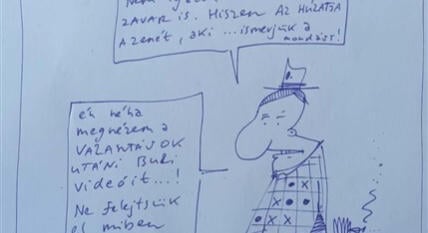 ZAVAR IS. Hiszen AZ HÚZATJA
A zenét, aki ... ismerjük a
mondást!
én néha
megnézem a
VÁLANTÁSOK
UTÁNI Buli
videóit...!
Ne felejtsük
el miben